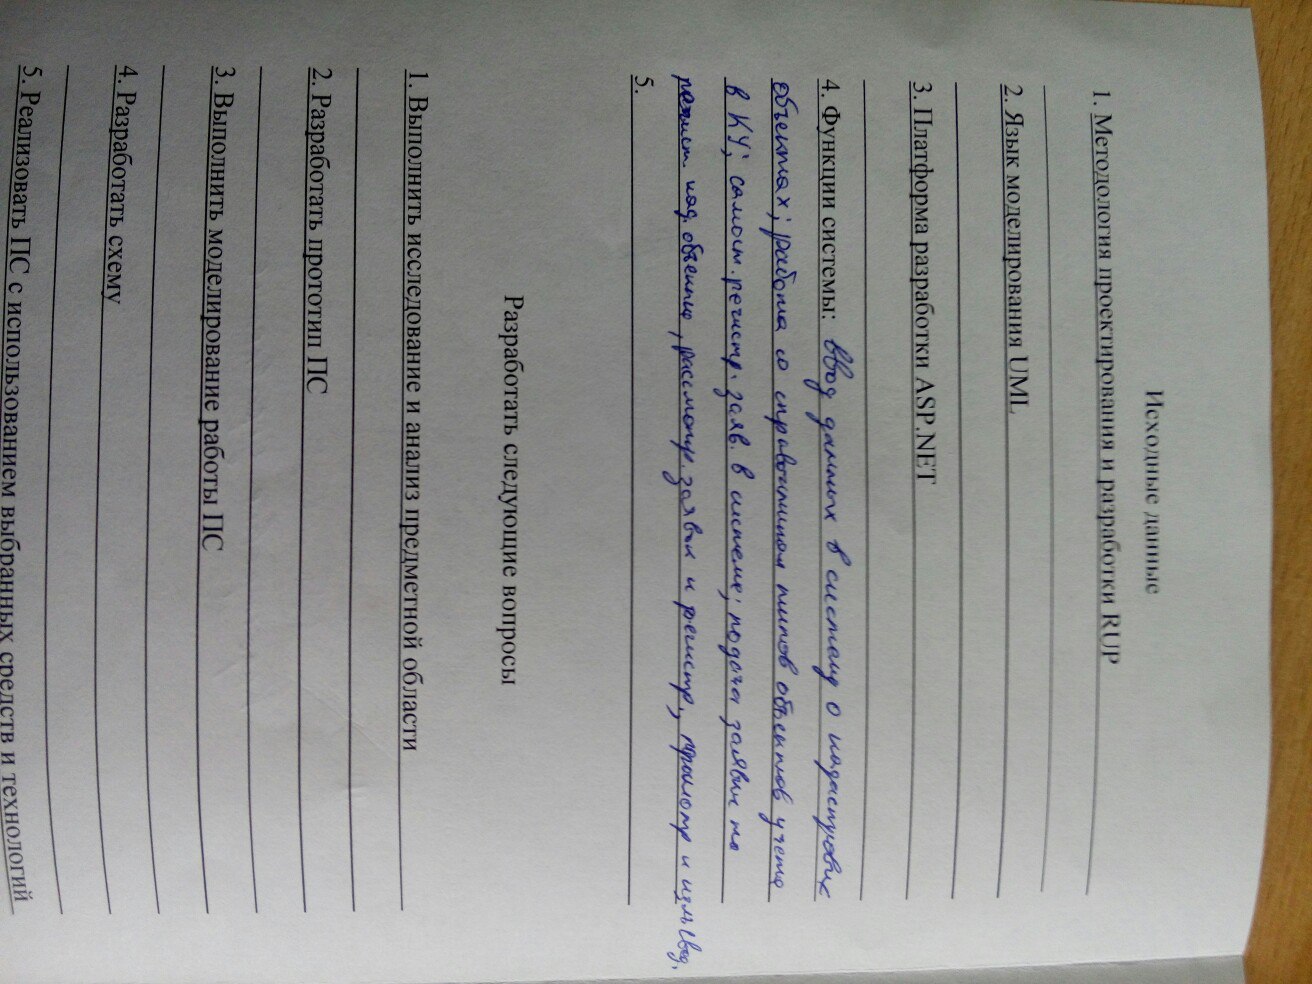 Исходные данные
1. Методология проектирования и разработки RUP
2. Язык моделирования UML
3. Платформа разработки ASP.NET
4. Функции системы: ввод данных в систему о кадастровых
объектах; работа со справочником типов объектов учета
в КУ; самост. регистр. заяв. в системе; подача заявки на
кад. объекта, рассмотр. заявок и регистр., просмотр и
5.
Разработать следующие вопросы
1. Выполнить исследование и анализ предметной области
2. Разработать прототип ПС
3. Выполнить моделирование работы ПС
4. Разработать схему
5. Реализовать ПС с использованием выбранных средств и технологий